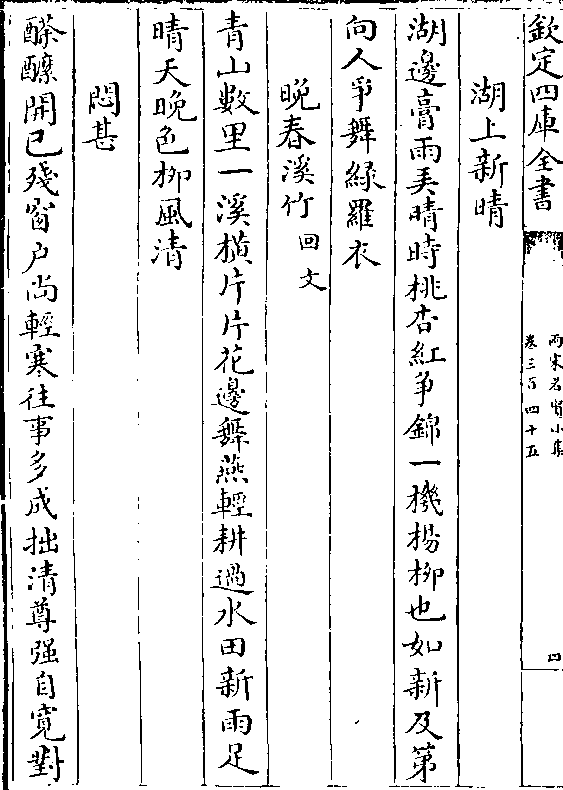 欽定四庫全書
兩宋名賢小集
卷三百四十五
四
湖上新晴
湖邊膏雨羙晴時桃杏紅爭錦一機楊柳也如新及第
向人爭舞綠羅衣
晚春溪竹回文
青山數里一溪橫片片花邊舞燕輕耕過水田新雨足
晴天晚色柳風清
悶甚
酴醾開已殘窗户尚輕寒往事多成拙清尊强自寛對